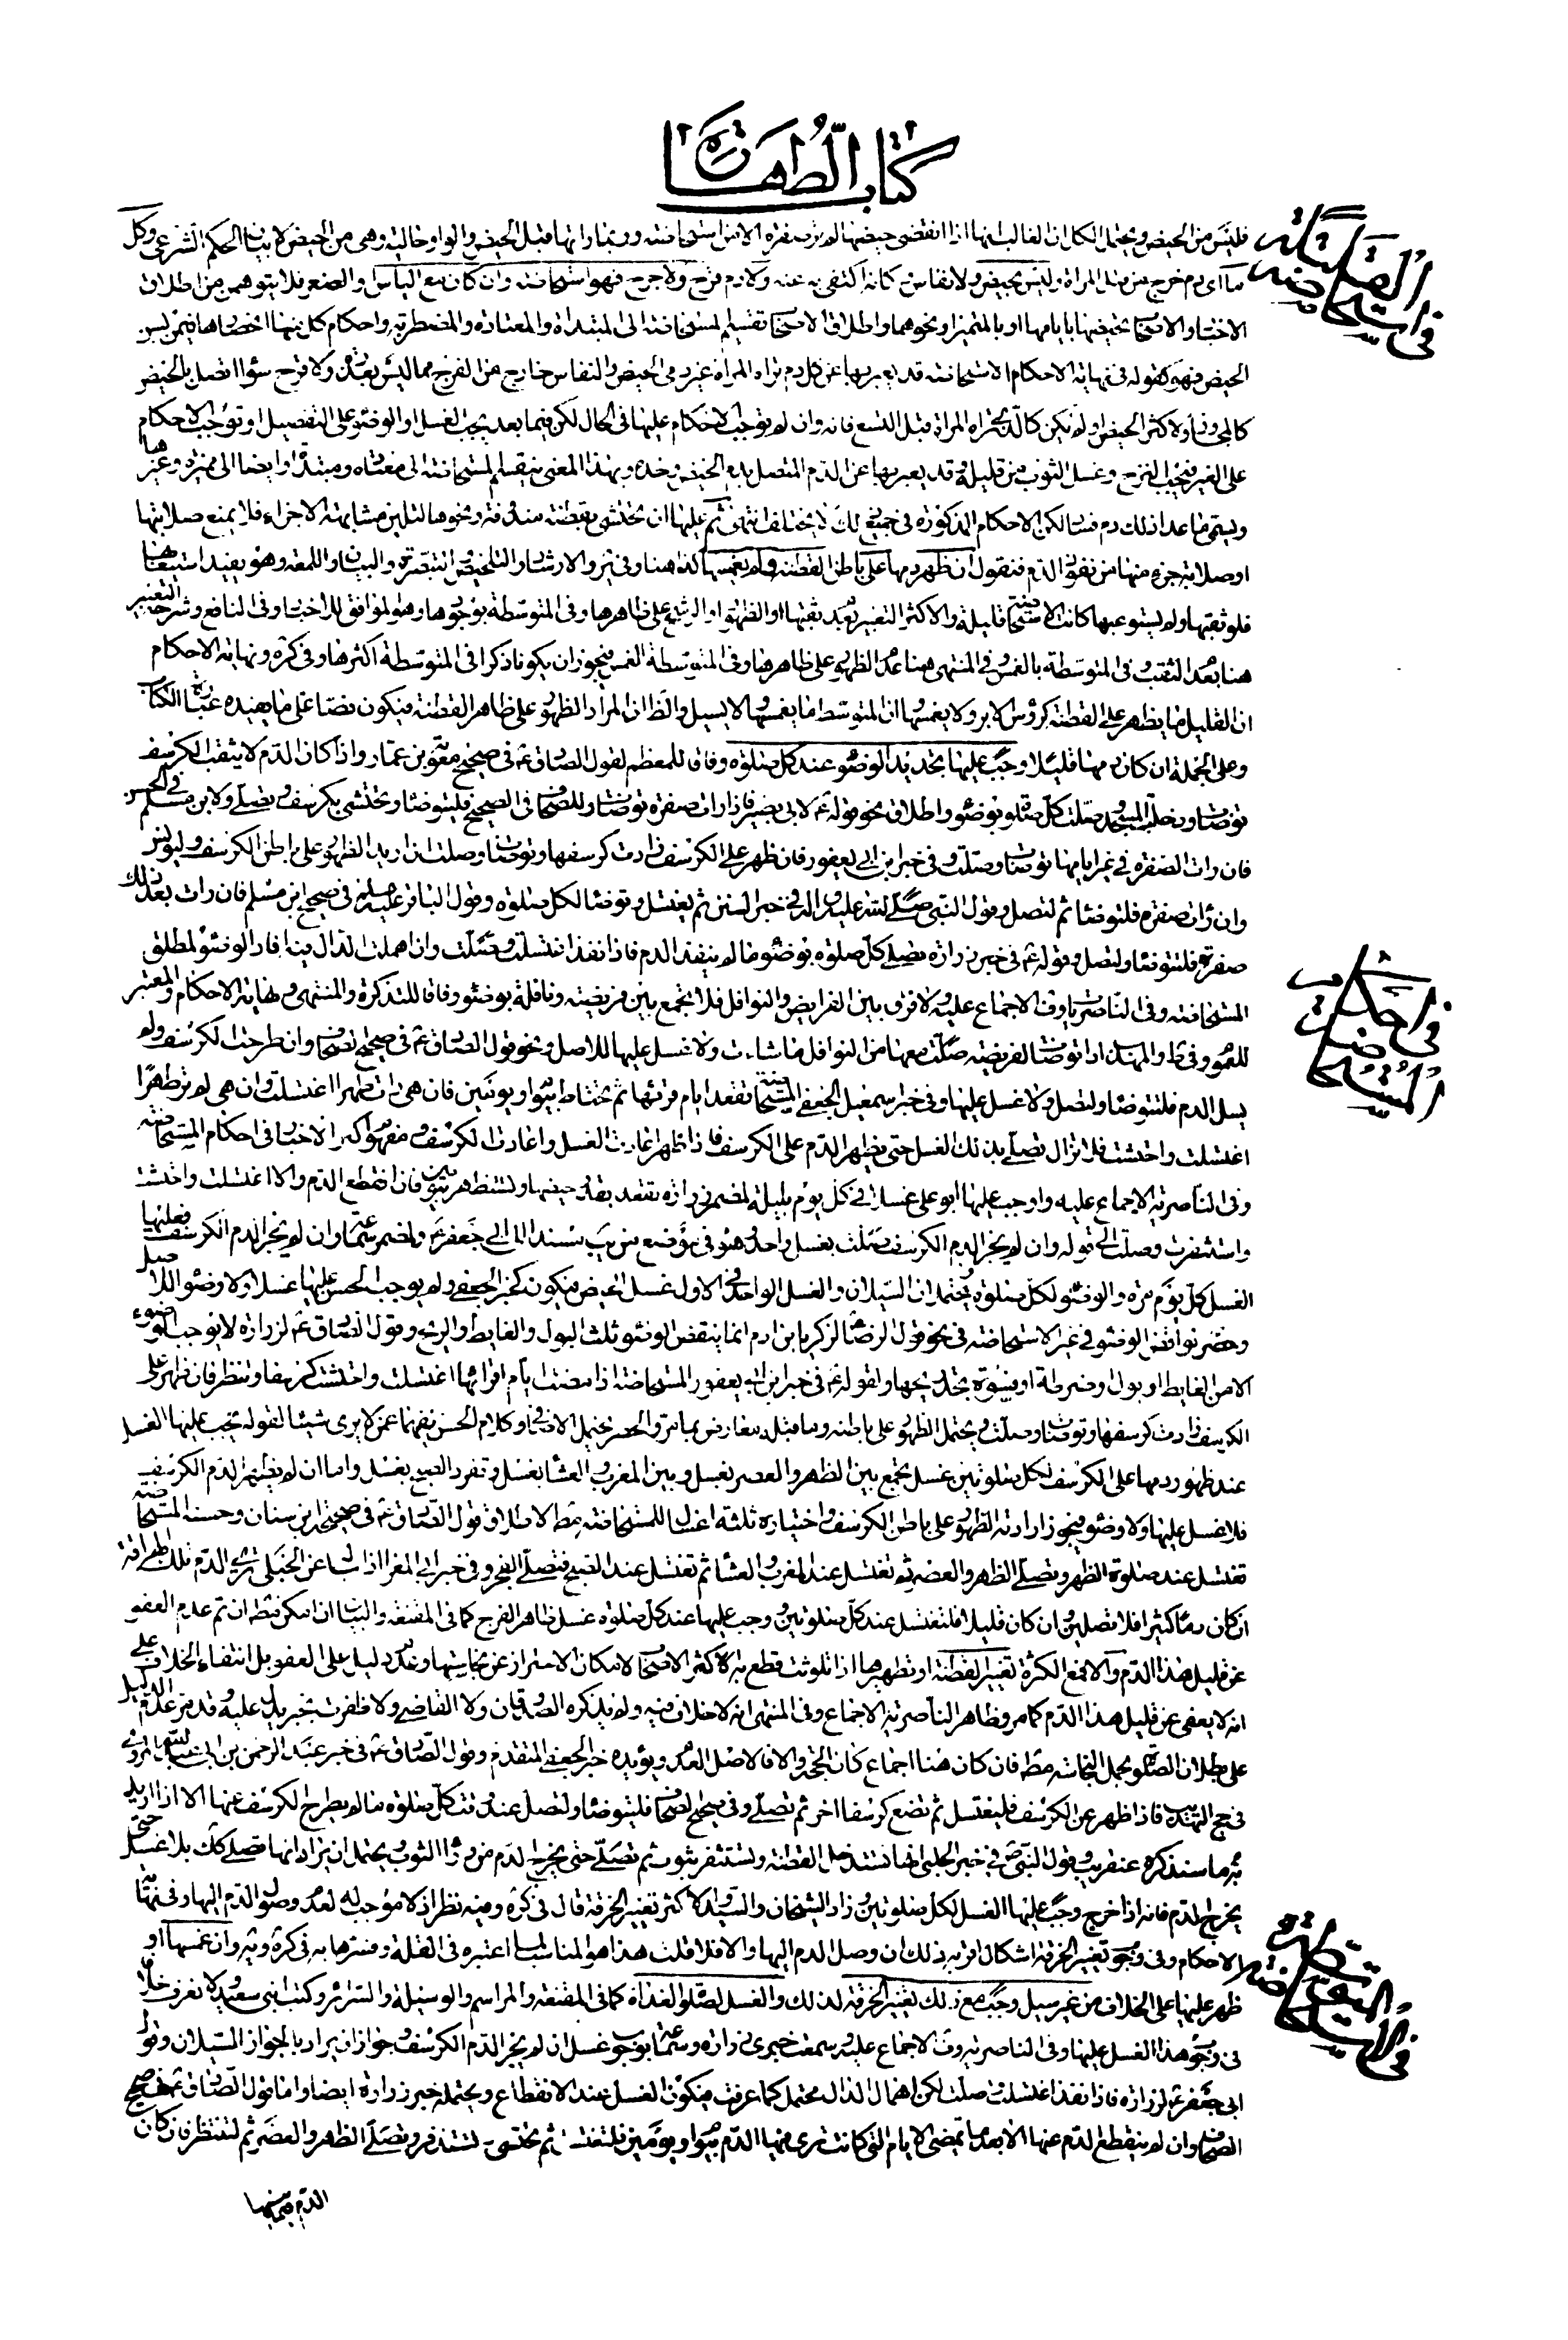 كتاب الطهارة
فليس من الحيض ويحتمل الكل ان الغالب انها اذا انقضى حيضها لم تر صفرة الا من استحاضة وربما راتها قبل الحيض والواو حالية وهي من الحيض لا بيان الحكم الشرعي وكل
ما اي دم خرج من قبل المراة وليس بحيض ولا نفاس كانه اكتفى به عنه ولا دم قرح ولا جرح فهو استحاضة وان كان مع الياس والصغر فلا يتوهم من اطلاق
الاخبار والاصحاب تحيضها بايامها او بالتميز ونحوهما واطلاق الاصحاب تقسيم المستحاضة الى المبتداة والمعتادة والمضطربة واحكام كل منها اختصاصها بمن ليس
الحيض فهو كقوله في نهاية الاحكام الاستحاضة قد يعبر بها عن كل دم تراه المراة غير دمي الحيض والنفاس خارج من الفرج مما ليس بعذرة ولا قرح سواء اتصل بالحيض
كالمجاوز لاكثر الحيض او لم يكن كالذي تراه المراة قبل التسع فانه وان لم يوجب الاحكام عليها في الحال لكن فيما بعد يجب الغسل او الوضوء على التفصيل او توجب الاحكام
على الغير فيجب النزح وغسل الثوب من قليله وقد يعبر بها عن الدم المتصل بدم الحيض وحده وبهذا المعنى ينقسم المستحاضة الى معتادة ومبتداة وايضا الى مميزة وغيرها
ويسمى ما عدا ذلك دم فساد لكن الاحكام المذكورة في جميع ذلك لا يختلف انتهى ثم عليها ان تحتشي بقطنة مندوفة ونحوها لتلين مشابهة الاجزاء فلا يمنع صلابتها
او صلابة جزء منها من نفوذ الدم فنقول ان ظهر دمها على باطن القطنة ولم يغمسها كذا هنا وفي ير والارشاد والتلخيص والتبصرة والبيان واللمعة وهو يفيد استيعابها
فلو ثقبها ولم يستوعبها كانت الاستحاضة قليلة والاكثر التعبير بعدم ثقبها او الظهور او الرشح على ظاهرها وفي المتوسطة بوجودها وهو الموافق للاخبار وفي النافع وشرحه التعبير
هنا بعدم الثقب وفي المتوسطة بالغمس وفي المنتهى هنا عدم الظهور على ظاهرها وفي المتوسطة الغمس فيجوز ان يكونا ذكرا في المتوسطة اكثرها وفي كره ونهاية الاحكام
ان القليل ما يظهر على القطنة كرؤس الابر ولا يغمسها وان المتوسط ما يغمسها ولا يسيل والظ ان المراد الظهور على ظاهر القطنة فيكون نصا على ما يفيده عبارة الكتاب
وعلى الجملة ان كان دمها قليلا وجب عليها تجديد الوضوء عند كل صلوة وفاقا للمعظم لقول الصادق ع في صحيح معوية بن عمار واذا كان الدم لا يثقب الكرسف
توضات ودخلت المسجد وصلت كل صلوة بوضوء واطلاق نحو قوله ع لابي بصير فاذا رات صفرة توضات وللصحاف في الصحيح فليتوضا وتحتشي بكرسف وتصلي ولابن مسلم في الحسن
فان رات الصفرة في غير ايامها توضات وصلت وفي خبر ابن ابي يعفور فان ظهر على الكرسف زادت كرسفها وتوضات وصلت ان اريد الظهور على باطن الكرسف وليونس
وان رات صفرة فلتتوضا ثم لتصل وقول النبي صلى الله عليه واله في خبر السنن ثم يغتسل وتوضا لكل صلوة وقول الباقر عليه السلام في صحيح ابن مسلم فان رات بعد ذلك
صفرة فلتتوضا ولتصل وقوله ع في خبر زرارة تصلي كل صلوة بوضوء ما لم ينفذ الدم فاذا نفذ اغتسلت وصلت وان اهملت الدال فينا فاد الوضوء لمطلق
المستحاضة وفي الناصريات وف الاجماع عليه ولا فرق بين الفرايض والنوافل فلا يجمع بين فريضة ونافلة بوضوء وفاقا للتذكرة والمنتهى ونهاية الاحكام والمعتبر
للعموم وفي ط والمهذب اذا توضات الفريضة صلت معها من النوافل ما شاءت ولا غسل عليها للاصل ونحو قول الصادق ع في صحيح الصحاف وان طرحت الكرسف ولم
يسل الدم فلتتوضا ولتصل ولا غسل عليها وفي خبر اسمعيل الجعفي المستحاضة تقعد ايام قرئها ثم تحتاط بيوم او يومين فان هي رات طهرا اغتسلت وان هي لم تر طهرا
اغتسلت واحتشت فلا تزال تصلي بذلك الغسل حتى يظهر الدم على الكرسف فاذا ظهر اعادت الغسل واعادت الكرسف ومفهوم اكثر الاخبار في احكام المستحاضة
وفي الناصرية الاجماع عليه واوجب عليها ابو علي غسلا في كل يوم بليلة لمضمر زرارة تقعد بقدر حيضها وتستظهر بيومين فان انقطع الدم والا اغتسلت واحتشت
واستثفرت وصلت الى قوله وان لم يجز الدم الكرسف صلت بغسل واحد وهو في موضع من يب مسند الى ابي جعفر ع ولمضمر سماعة وان لم يجز الدم الكرسف فعليها
الغسل كل يوم مرة والوضوء لكل صلوة ويحتملان السيلان والغسل الواحد في الاول غسل الحيض فيكون كخبر الجعفي ولم يوجب الحسن عليها غسلا ولا وضوء للاصل
وحصر نواقض الوضوء في غير الاستحاضة في نحو قول الرضا ع لزكريا بن ادم انما ينقض الوضوء ثلث البول والغايط والريح وقول الصادق ع لزرارة لا يوجب الوضوء
الا من الغايط او بول او ضرطة او فسوة تجد ريحها ولقوله ع في خبر ابن ابي يعفور المستحاضة اذا مضت ايام اقرائها اغتسلت واحتشت كرسفا وتنظر فان ظهر على
الكرسف زادت كرسفها وتوضات وصلت ويحتمل الظهور على باطنه وما قبله معارض بما مر والحصر يحتمل الاضافي وكلام الحسن يفهمنا عمن لا يرى شيئا لقوله يجب عليها الغسل
عند ظهور دمها على الكرسف لكل صلوتين غسل يجمع بين الظهر والعصر بغسل وبين المغرب والعشا بغسل وتفرد الصبح بغسل واما ان لم يظهر الدم الكرسف
فلا غسل عليها ولا وضوء فيجوز ارادته الظهور على باطن الكرسف واختياره ثلثة اغسال للمستحاضة مط لاطلاق قول الصادق ع في صحيح ابن سنان وحسنه المستحاضة
تغتسل عند صلوة الظهر وتصلي الظهر والعصر ثم تغتسل عند المغرب والعشا ثم تغتسل عند الصبح فتصلي الفجر وفي خبر ابي المغرا اذا سئل عن الحبلى ترى الدم تلك الهراقة
ان كان دما كثيرا فلا تصلين وان كان قليلا فلتغتسل عند كل صلوتين ووجب عليها عند كل صلوة غسل ظاهر الفرج كما في المقنعة والبيان ان امكن مط ان تم عدم العفو
عن قليل هذا الدم والا فمع الكثرة تغيير القطنة او تطهيرها اذا تلوثت قطع به اكثر الاصحاب لامكان الاحتراز عن نجاستها وعدم دليل على العفو بل انتفاء الخلاف على
انه لا يعفى عن قليل هذا الدم كما مر وظاهر الناصرية الاجماع وفي المنتهى انه لا خلاف فيه ولم يذكره الصدوقان ولا القاضي ولا ظفرت بخبر يدل عليه وقد مر عدم الدليل
على بطلان الصلوة بحمل النجاسة مط فان كان هنا اجماع كان الحجة والا فالاصل العدم ويؤيده خبر الجعفي المتقدم وقول الصادق ع في خبر عبد الرحمن بن ابي عبد الله المروي
في حج التهذيب فاذا ظهر عن الكرسف فليغتسل ثم تضع كرسفا اخر ثم تصلي وفي صحيح الصحاف فليتوضا ولتصل عند وقت كل صلوة ما لم يطرح الكرسف عنها الا اذا اريد
به ما سنذكره عنقريب وقول النبي ص في خبر الحلبي انها تستدخل القطنة وتستثفر بثوب ثم تصلي حتى يخرج الدم من وراء الثوب ويحتمل ان يراد انها تصلي كذلك بلا غسل حتى
يخرج الدم فانه اذا خرج وجب عليها الغسل لكل صلوتين وزاد الشيخان والسيد والاكثر تغيير الخرقة قال في كره وفيه نظر اذ لا موجب له لعدم وصول الدم اليها وفي نهاية
الاحكام وفي وجوب تغيير الخرقة اشكال اقربه ذلك ان وصل الدم اليها والا فلا قلت هذا هو المناسب لما اعتبره في القلة وفسرها به في كره ويه وان غمسها او
ظهر عليها على الخلاف من غير سيل وجب مع ذلك تغيير الخرقة لذلك والغسل لصلوة الغداة كما في المقنعة والمراسم والوسيلة والسرائر وكتب ابني سعيد ولا نعرف خلافا
في وجوب هذا الغسل عليها وفي الناصرية وف الاجماع عليه وسمعت خبري زرارة وسماعة بوجوب غسل ان لم يجز الدم الكرسف وجواز ان يراد بالجواز السيلان وقول
ابي جعفر ع لزرارة فاذا نفذ اغتسلت وصلت لكن اهمال الدال محتمل كما عرفت فيكون الغسل عند الانقطاع ويحتمله خبر زرارة ايضا واما قول الصادق ع في صحيح
الصحاف وان لم ينقطع الدم عنها الا بعد ما تمضي الايام التي كانت ترى فيها الدم بيوم او يومين فلتغتسل ثم تحتشي وتستذفر وتصلي الظهر والعصر ثم لتنظر فان كان
الدم فيما بينها
في احكام المستحاضة